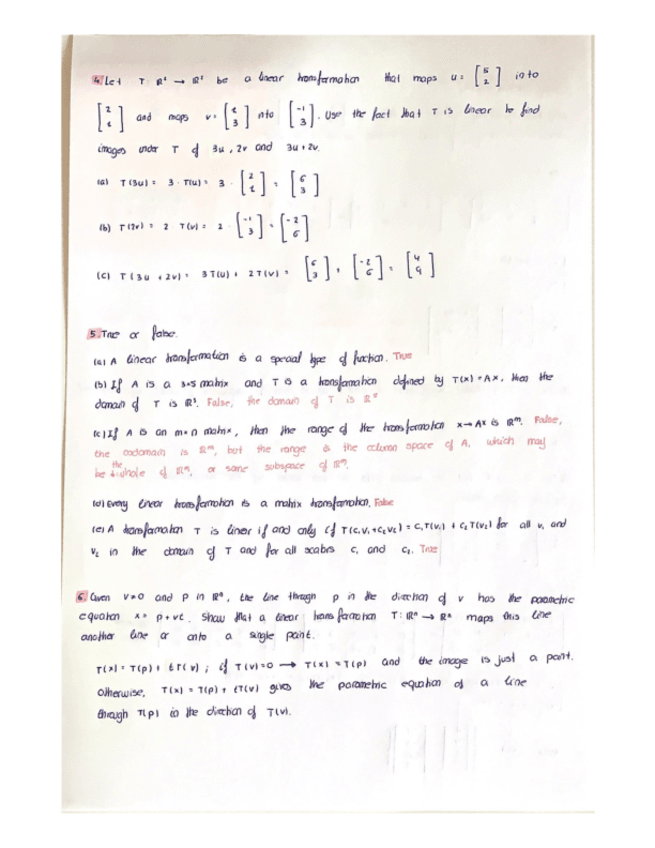 4. Let T: ℝ² → ℝ² be a linear transformation that maps u = [5 2] into
[2 1] and maps v = [1 3] into [-1 3]. Use the fact that T is linear to find
images under T of 3u, 2v and 3u + 2v.
(a) T(3u) = 3 · T(u) = 3 · [2 1] = [6 3]
(b) T(2v) = 2 T(v) = 2 · [-1 3] = [-2 6]
(c) T(3u + 2v) = 3T(u) + 2T(v) = [6 3] + [-2 6] = [4 9]
5. True or false.
(a) A linear transformation is a special type of function. True
(b) If A is a 3×5 matrix and T is a transformation defined by T(x) = Ax, then the
domain of T is ℝ³. False, the domain of T is ℝ⁵
(c) If A is an m×n matrix, then the range of the transformation x→Ax is ℝᵐ. False,
the codomain is ℝᵐ, but the range is the column space of A, which may
be the whole of ℝᵐ, or some subspace of ℝᵐ.
(d) Every linear transformation is a matrix transformation. False
(e) A transformation T is linear if and only if T(c₁v₁+c₂v₂) = c₁T(v₁) + c₂T(v₂) for all v₁ and
v₂ in the domain of T and for all scalars c₁ and c₂. True
6. Given v≠0 and p in ℝⁿ, the line through p in the direction of v has the parametric
equation x = p + vt. Show that a linear transformation T: ℝⁿ → ℝⁿ maps this line
another line or onto a single point.
T(x) = T(p) + tT(v) ; if T(v)=0 → T(x) = T(p) and the image is just a point.
otherwise, T(x) = T(p) + tT(v) gives the parametric equation of a line
through T(p) in the direction of T(v).